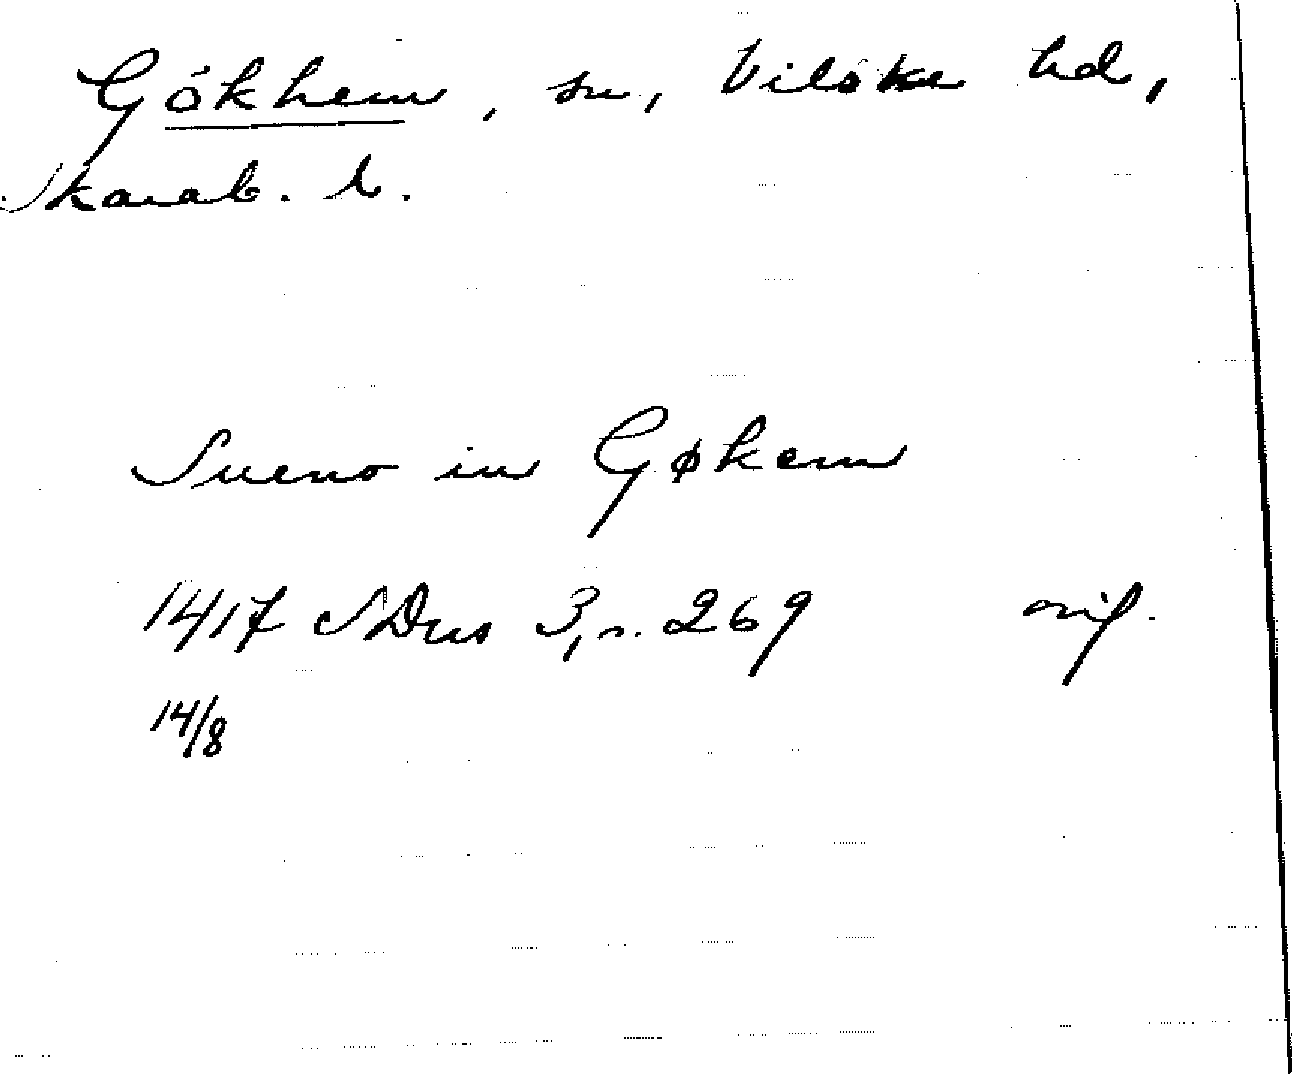 Gökhem, sn, Vilske hd,
Skarab. l.
Sueno in Gøkem
1417 SDns 3, s. 269 orig.
14/8